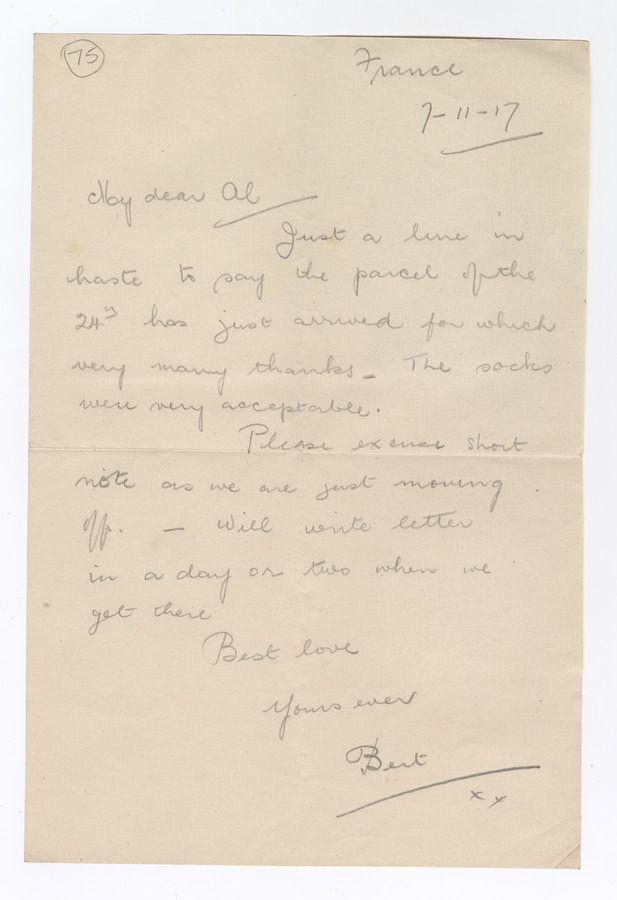 75
France
7-11-17
My dear Al
Just a line in
haste to say the parcel of the
24th has just arrived for which
very many thanks - The socks
were very acceptable.
Please excuse short
note as we are just moving
off. - Will write letter
in a day or two when we
get there
Best love
Yours ever
Bert
x x